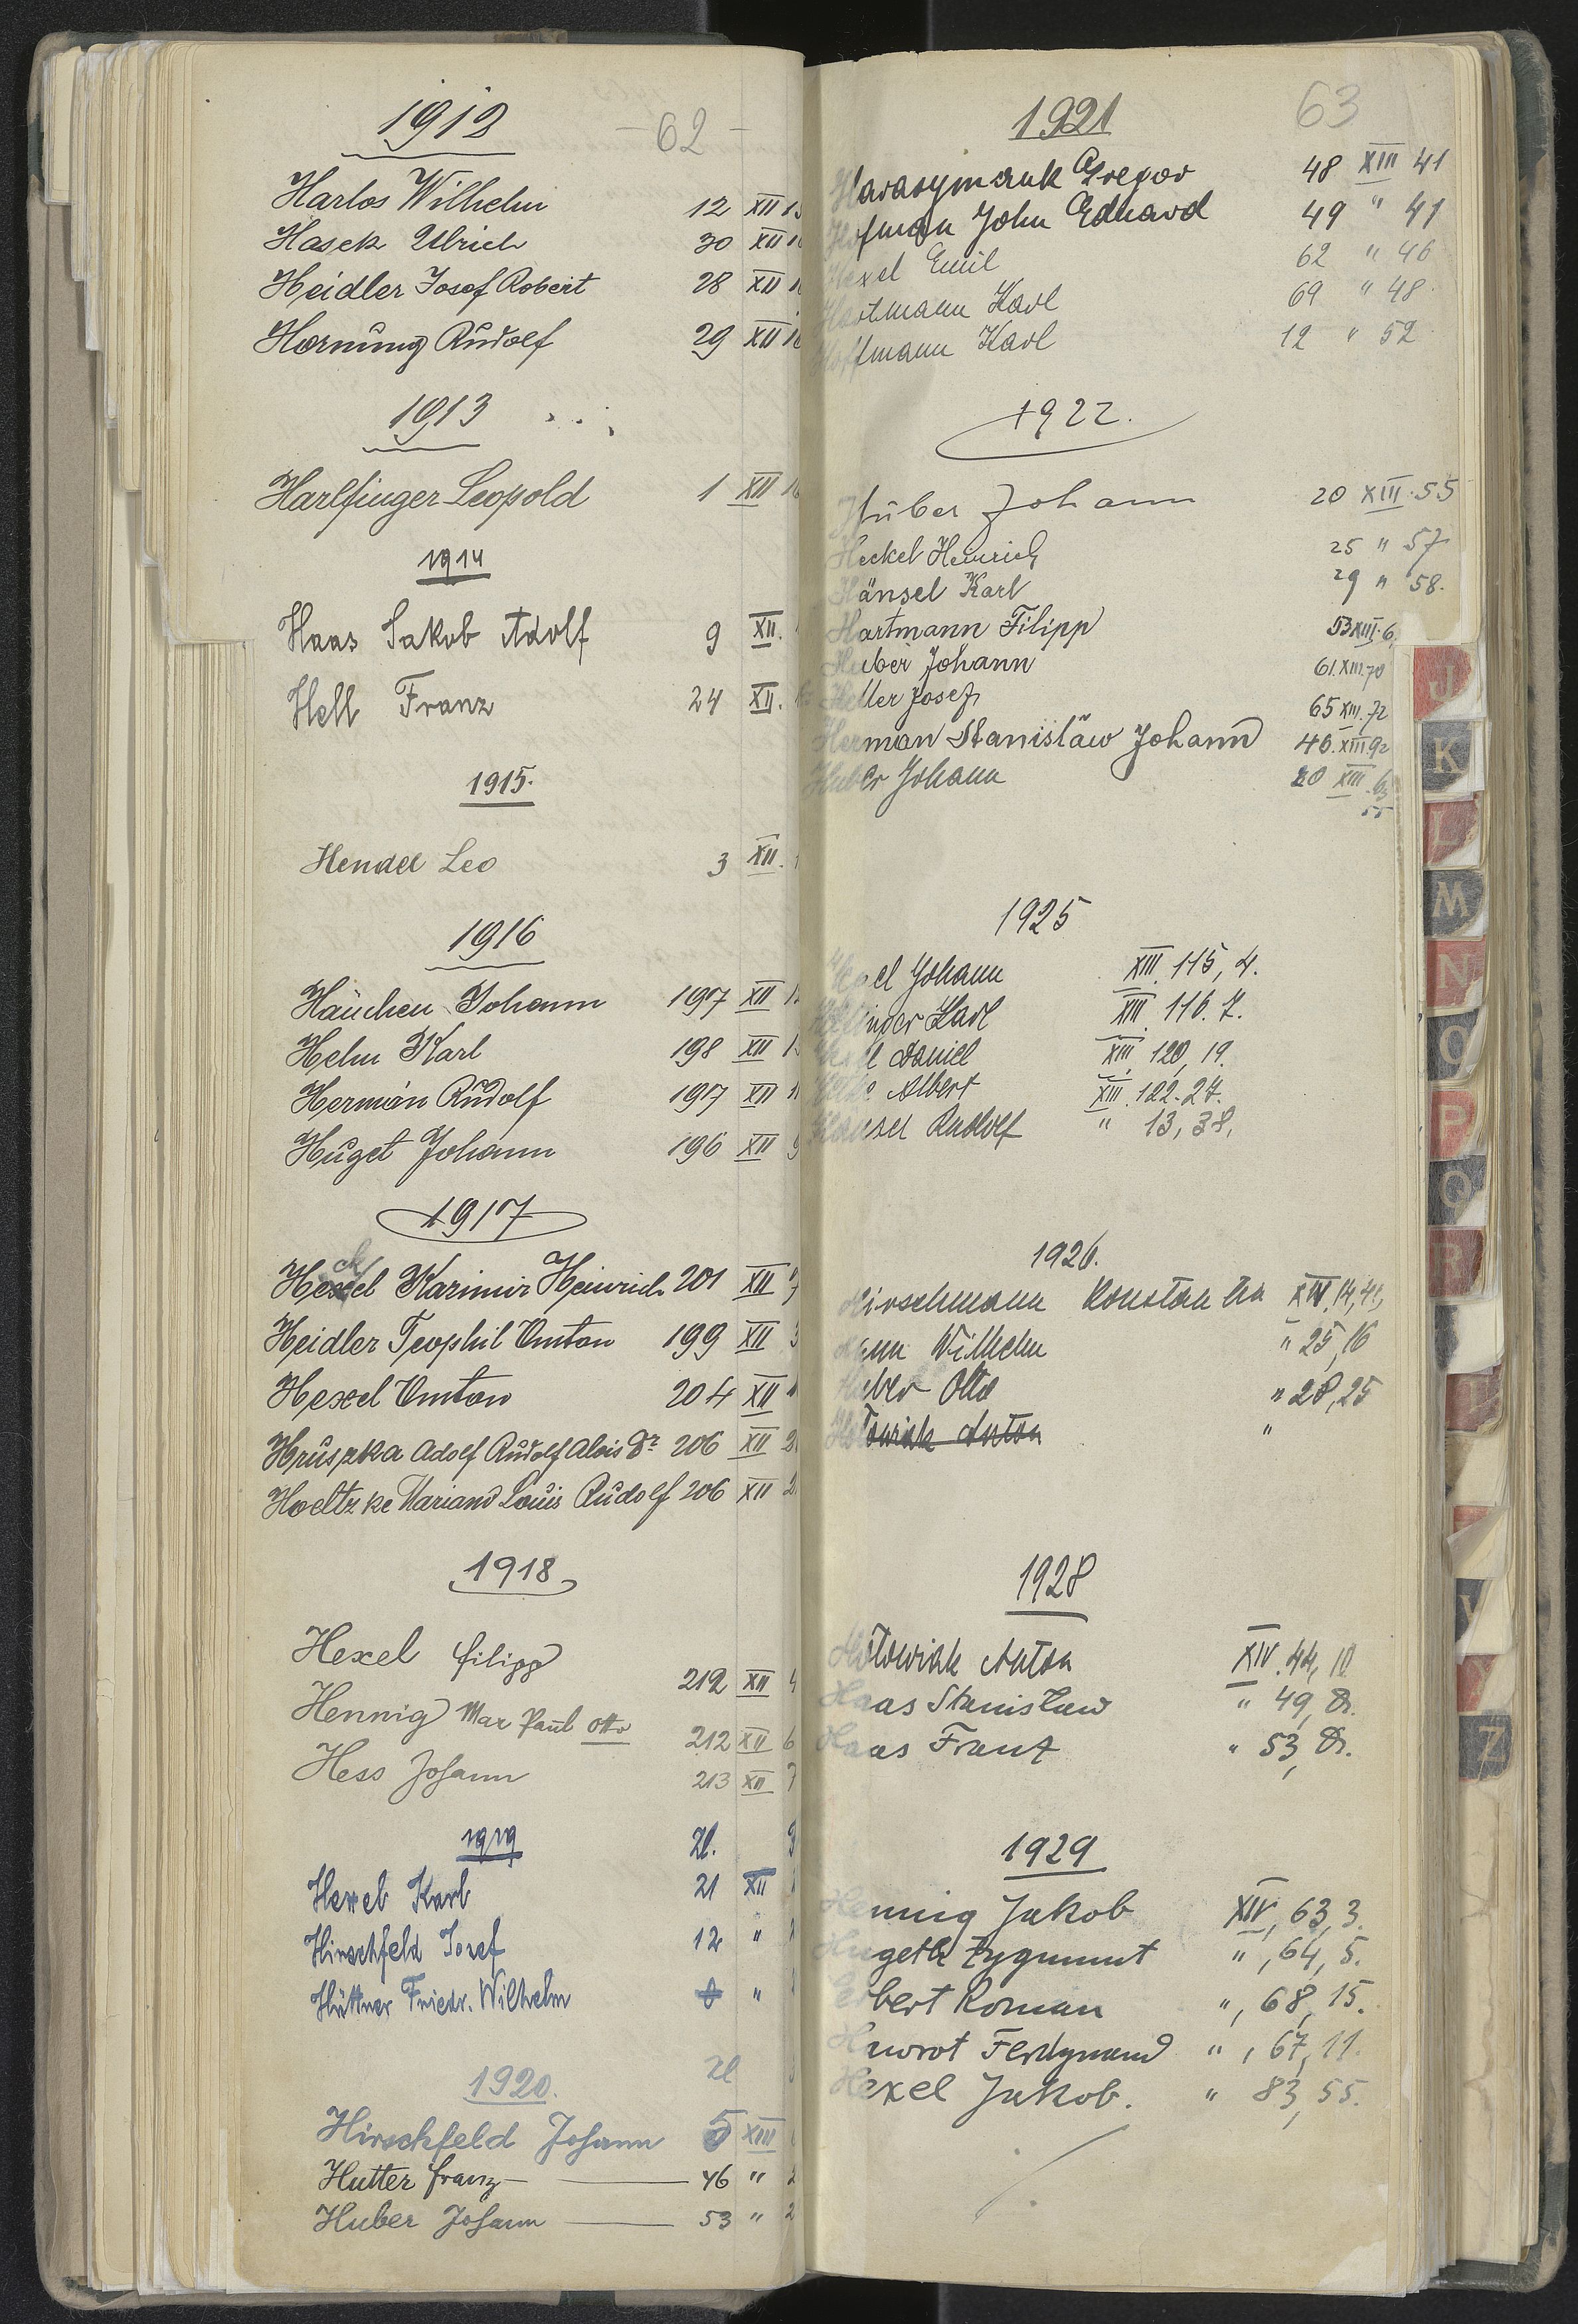 - 62 -
1912
Harlos Wilhelm 12 XII 15
Hasek Ulrich 30 XII 1
Heidler Josef Robert 28 XII 1
Hornung Rudolf 29 XII 16
1913
Harlfinger Leopold 1 XII 1
1914
Haas Jakob Adolf 9 XII.
Hell Franz 24 XII.
1915.
Hendel Leo 3 XII.
1916
Häuchen Johann 197 XII 1
Helm Karl 198 XII 1
Herman Rudolf 197 XII 1
Huget Johann 196 XII 9
1917
Hexel Karimir Heinrich 201 XII 7
Heidler Teophil Anton 199 XII 3
Hexel Anton 204 XII 1
Hruszka Adolf Rudolf Alois Dr 206 XII 2
Hoeltzke Mariand Louis Rudolf 206 XII 2
1918
Hexel Filipp 212 XII 4
Hennig Max Paul Otto 212 XII 6
Hess Johann 213 XII 7
1919
Hexel Karl 21 XII
Hirschfeld Josef 12 "
Hüttner Friedr. Wilhelm "
1920.
Hirschfeld Johann 5 XIII
Hutter Franz — 46 " 2
Huber Johann — 53 " 2
63
1921
Harasymauk Gregor 48 XIII 41
Hofman John Eduard 49 " 41
Hexel Emil 62 " 46
Hartmann Karl 69 " 48.
Hoffmann Karl 12 " 52
1922.
Huber Johann 20 XIII. 55
Heckel Heinrich 25 " 57
Hänsel Karl 29 " 58.
Hartmann Filipp 53 XIII. 6
Huber Johann 61. XIII. 70
Heller Josef 65 XIII. 72
Herman Stanisław Johann 46. XIII. 92
Huber Johann 20 XIII.
55
1925
Johann XIII. 115, 4.
Karl XIII. 116. 7.
Daniel XIII. 120, 19.
Albert XIII. 122. 27.
Hansel Rudolf " 13, 38,
1926.
Hirschmann Konstantin XIV. 14, 41,
Wilhelm " 25, 16
Huber Otto " 28, 25
Hołowiak Anton "
1928
Hołowiak Anton XIV. 44, 10
Haas Stanisław " 49, Dr.
Haas Franz " 53, Dr.
1929
Hennig Jakob XIV, 63, 3.
Hugeth Zygmunt " , 64, 5.
Herbert Roman " , 68, 15.
Hawrot Ferdynand " , 67, 11.
Hexel Jakob. " 83, 55.
J
K
L
M
N
O
P
Q
R
U
Z